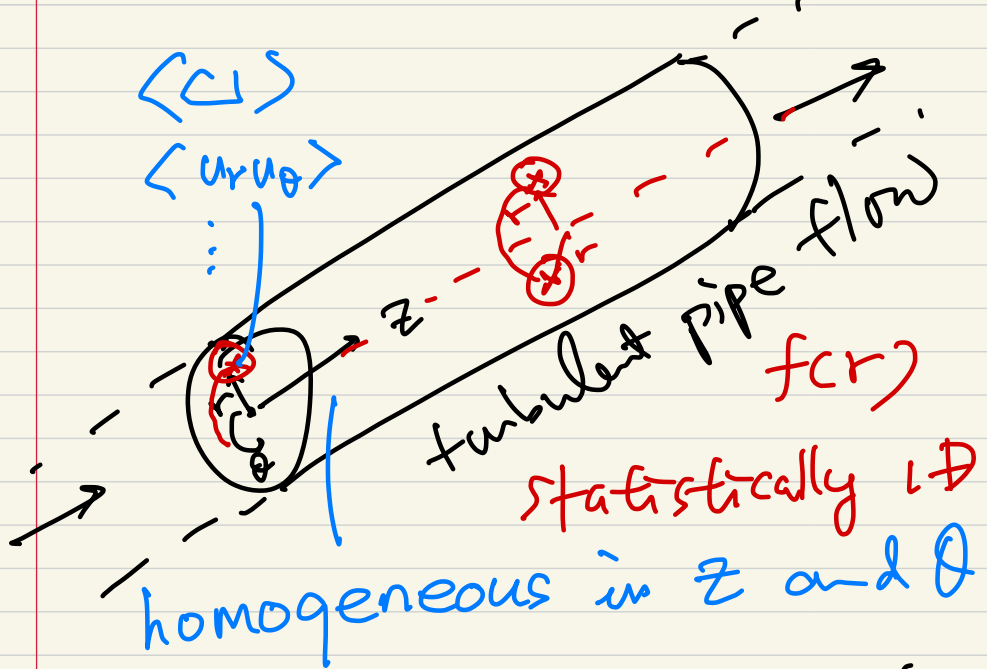 <u>
<u_r u_θ>
⋮
r
r
z
r
θ
turbulent pipe flow
f(r)
statistically 1D
homogeneous in z and θ